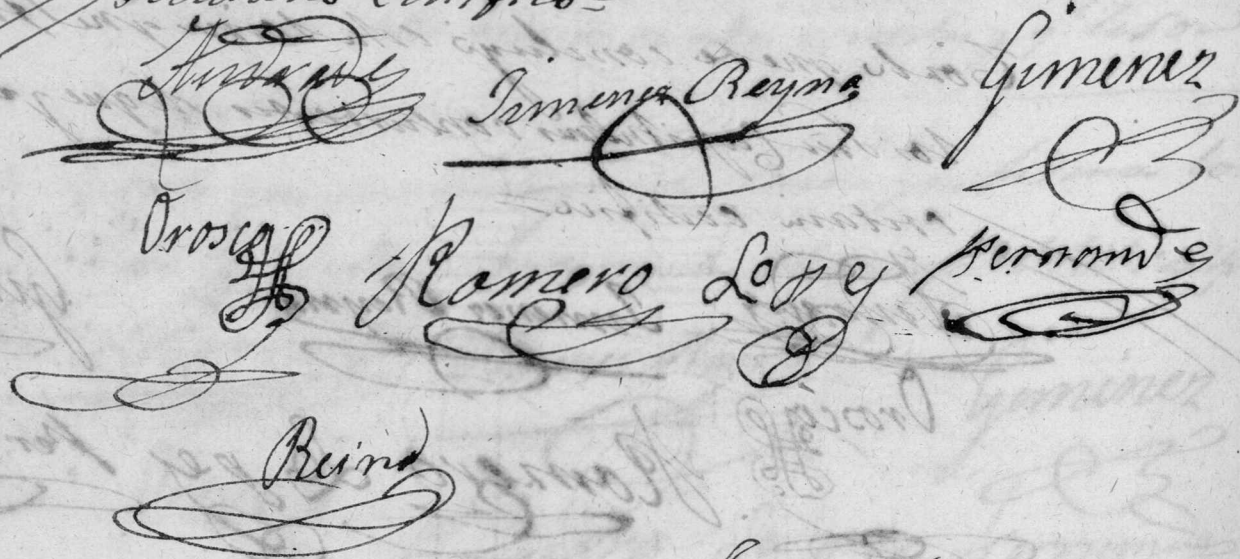 Andrade Jimenez Reyna Gimenez
Orosco Romero Lopez Fernandez
Reina